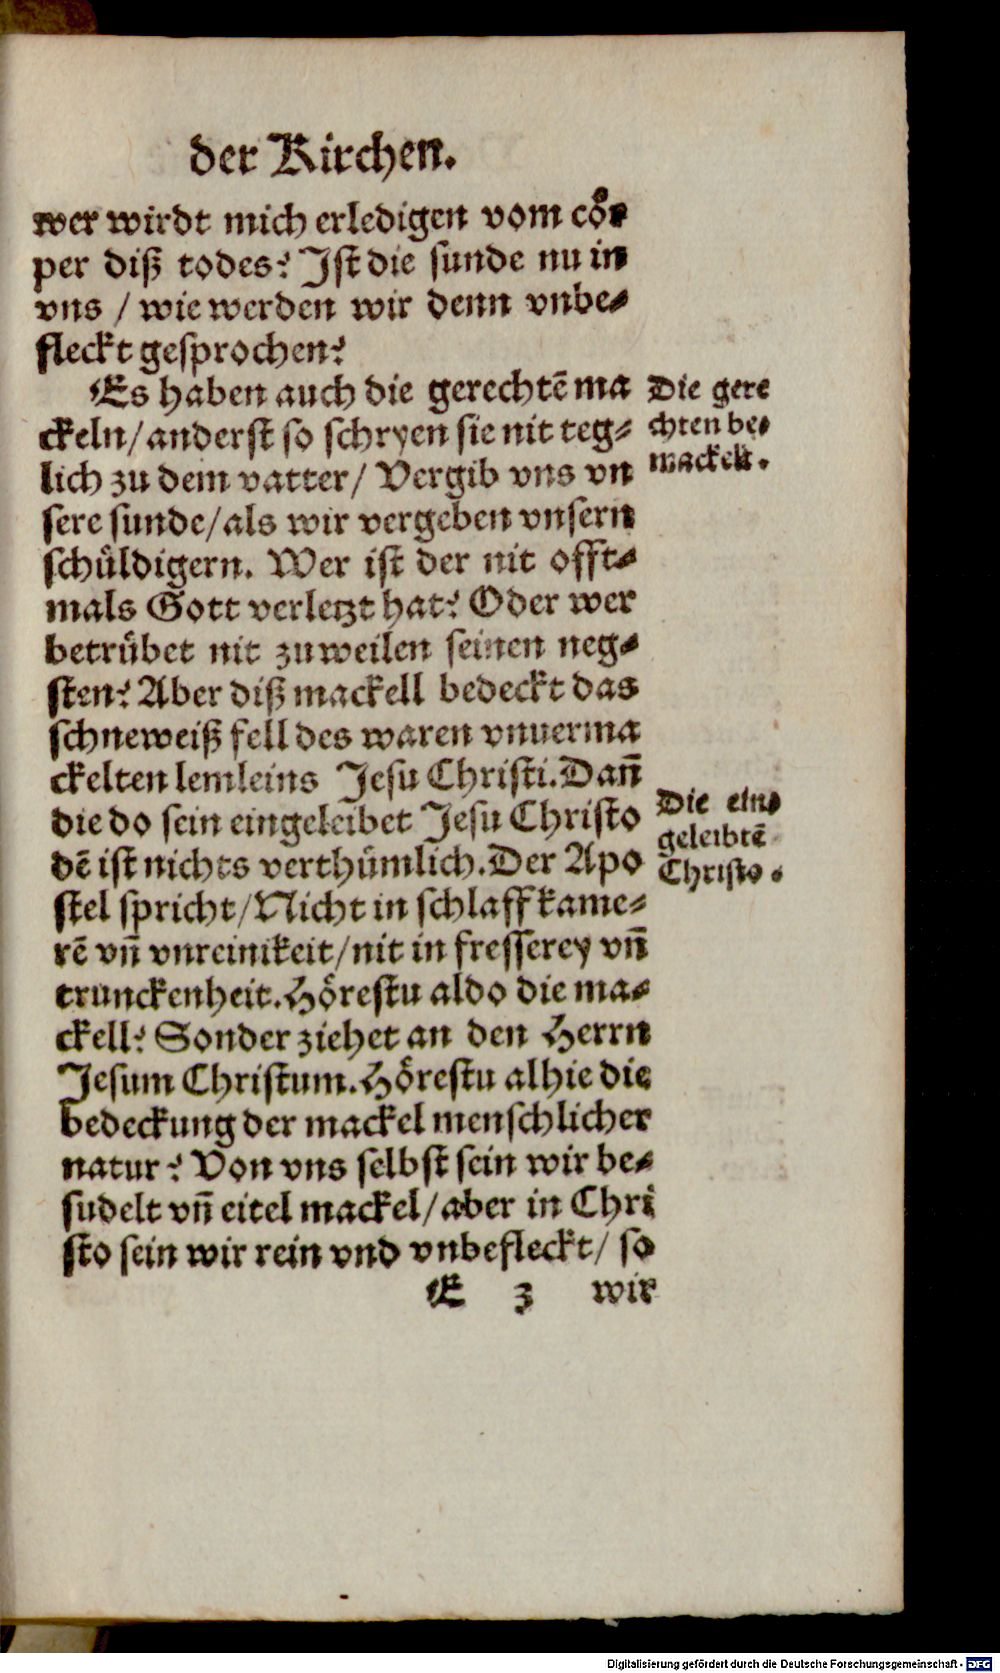 der Kirchen.
wer wirdt mich erledigen vom cör
per diß todes? Ist die sunde nu in
vns / wie werden wir denn vnbe⸗
fleckt gesprochen?
Es haben auch die gerechtē ma
ckeln/ anderst so schryen sie nit teg⸗
lich zu dem vatter/ Vergib vns vn
sere sunde/ als wir vergeben vnsern
schüldigern. Wer ist der nit offt⸗
mals Gott verletzt hat? Oder wer
betrübet nit zuweilen seinen neg⸗
sten? Aber diß mackell bedeckt das
schneweiß fell des waren vnuerma
ckelten lemleins Jesu Christi. Dañ
die do sein eingeleibet Jesu Christo
dē ist nichts verthümlich. Der Apo
stel spricht/ Nicht in schlaffkame⸗
rē vñ vnreinikeit/ nit in fresserey vñ
trunckenheit. Hörestu aldo die ma⸗
ckell? Sonder ziehet an den Herrn
Jesum Christum. Hörestu alhie die
bedeckung der mackel menschlicher
natur? Von vns selbst sein wir be⸗
sudelt vñ eitel mackel/ aber in Chri
sto sein wir rein vnd vnbefleckt/ so
E 3 wir
Die gere
chten be⸗
mackelt.
Die ein⸗
geleibtē
Christo.
Digitalisierung gefördert durch die Deutsche Forschungsgemeinschaft - DFG